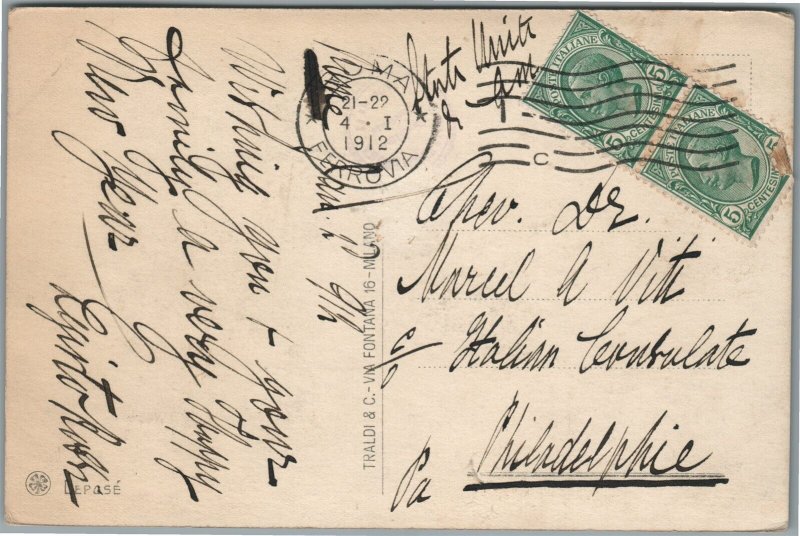 Rome Jan. 1
Wishing you & your
family a very Happy
New Year
Egisto Rossi
ROMA
21-22
4 · I
1912
FERROVIA
C
Stati Uniti
d. Am
POSTE ITALIANE
5
CENTESIMI
5
POSTE ITALIANE
5
CENTESIMI
5
Dr.
Marcel A Viti
c/o Italian Consulate
Philadelphie
Pa
TRALDI & C.-VIA FONTANA 16-MILANO
DEPOSÉ